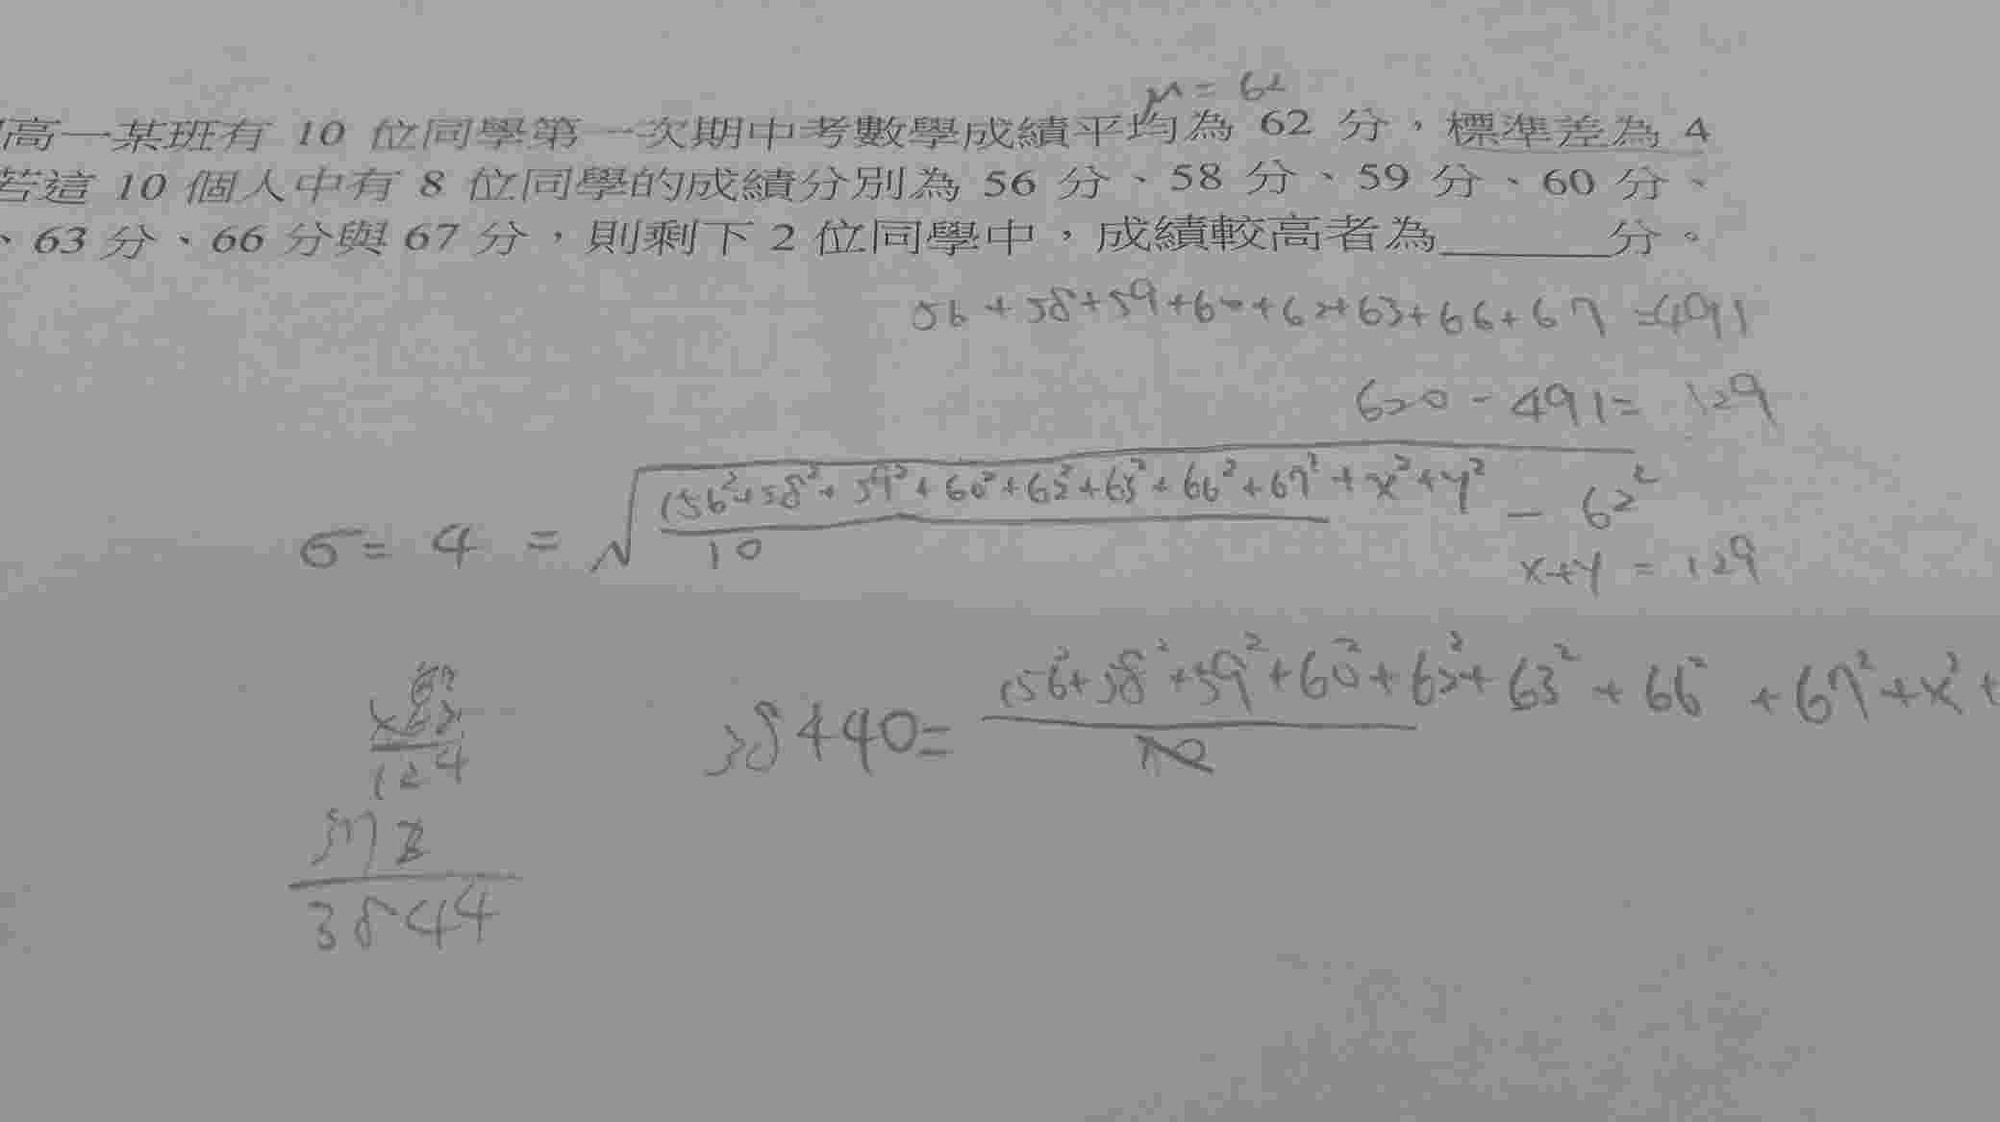 μ = 62
高一某班有 10 位同學第一次期中考數學成績平均為 62 分，標準差為 4
若這 10 個人中有 8 位同學的成績分別為 56 分、58 分、59 分、60 分、
、63 分、66 分與 67 分，則剩下 2 位同學中，成績較高者為______分。
56+58+59+60+62+63+66+67=491
620-491=129
σ=4=√(56²+58²+59²+60²+62²+63²+66²+67²+x²+y²
10
-62²
x+y=129
38440=(56²+58²+59²+60²+62²+63²+66²+67²+x²+
10
62
x62
124
372
3844